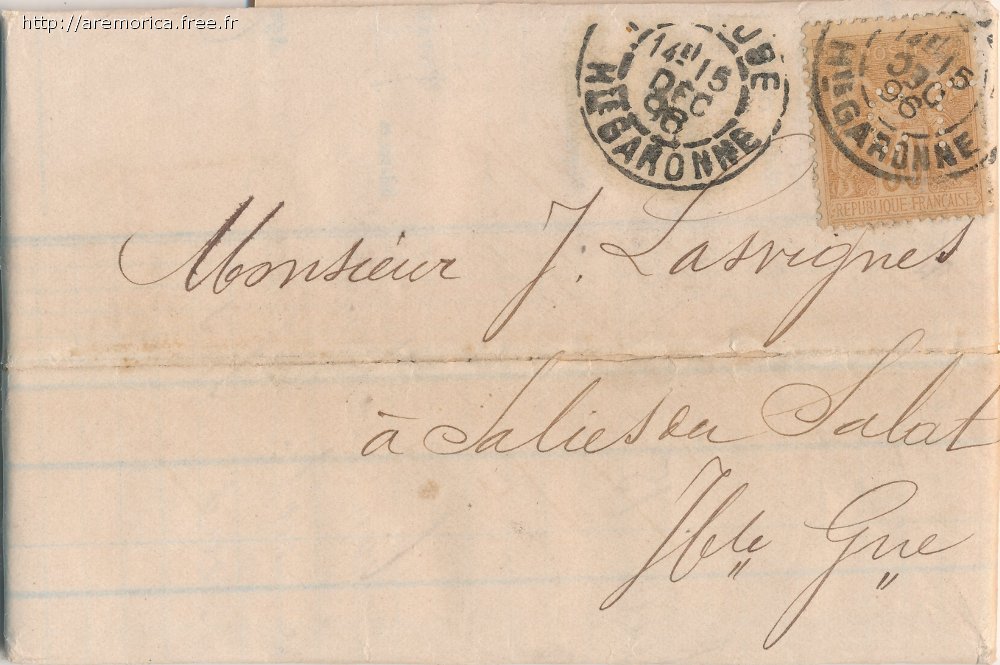 http://aremorica.free.fr
14E 15
DEC
96
HTE GARONNE
15
DEC
96
HTE GARONNE
REPUBLIQUE FRANÇAISE
Monsieur J. Lasvignes
à Salies du Salat
Hte Gne